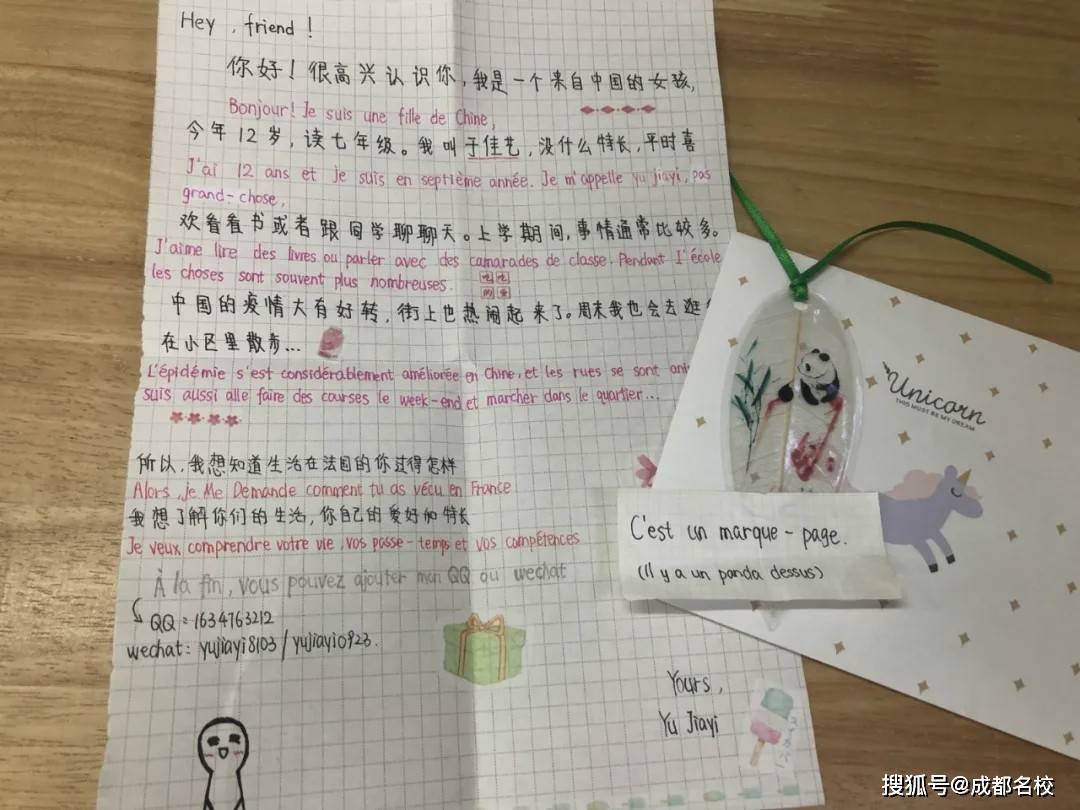 Hey, friend!
你好！很高兴认识你，我是一个来自中国的女孩，
Bonjour! Je suis une fille de Chine,
今年12岁，读七年级。我叫于佳艺，没什么特长，平时喜
J'ai 12 ans et je suis en septième année. Je m'appelle yu jiayi, pas
grand-chose,
欢看看书或者跟同学聊聊天。上学期间，事情通常比较多。
J'aime lire des livres ou parler avec des camarades de classe. Pendant l'école
les choses sont souvent plus nombreuses.
中国的疫情大有好转，街上也热闹起来了。周末我也会去逛
在小区里散步...
L'épidémie s'est considérablement améliorée en Chine, et les rues se sont
suis aussi allé faire des courses le week-end et marcher dans le quartier...
所以，我想知道生活在法国的你过得怎样
Alors, je Me Demande comment tu as vécu en France
我想了解你们的生活，你自己的爱好和特长
Je veux comprendre votre vie, vos passe-temps et vos compétences
À la fin, vous pouvez ajouter mon QQ ou wechat
QQ:1634763212
wechat: yujiayi8103/yujiayi0923.
Yours,
Yu Jiayi
Unicorn
THIS MUST BE MY DREAM
C'est un marque-page.
(Il y a un panda dessus)
搜狐号@成都名校